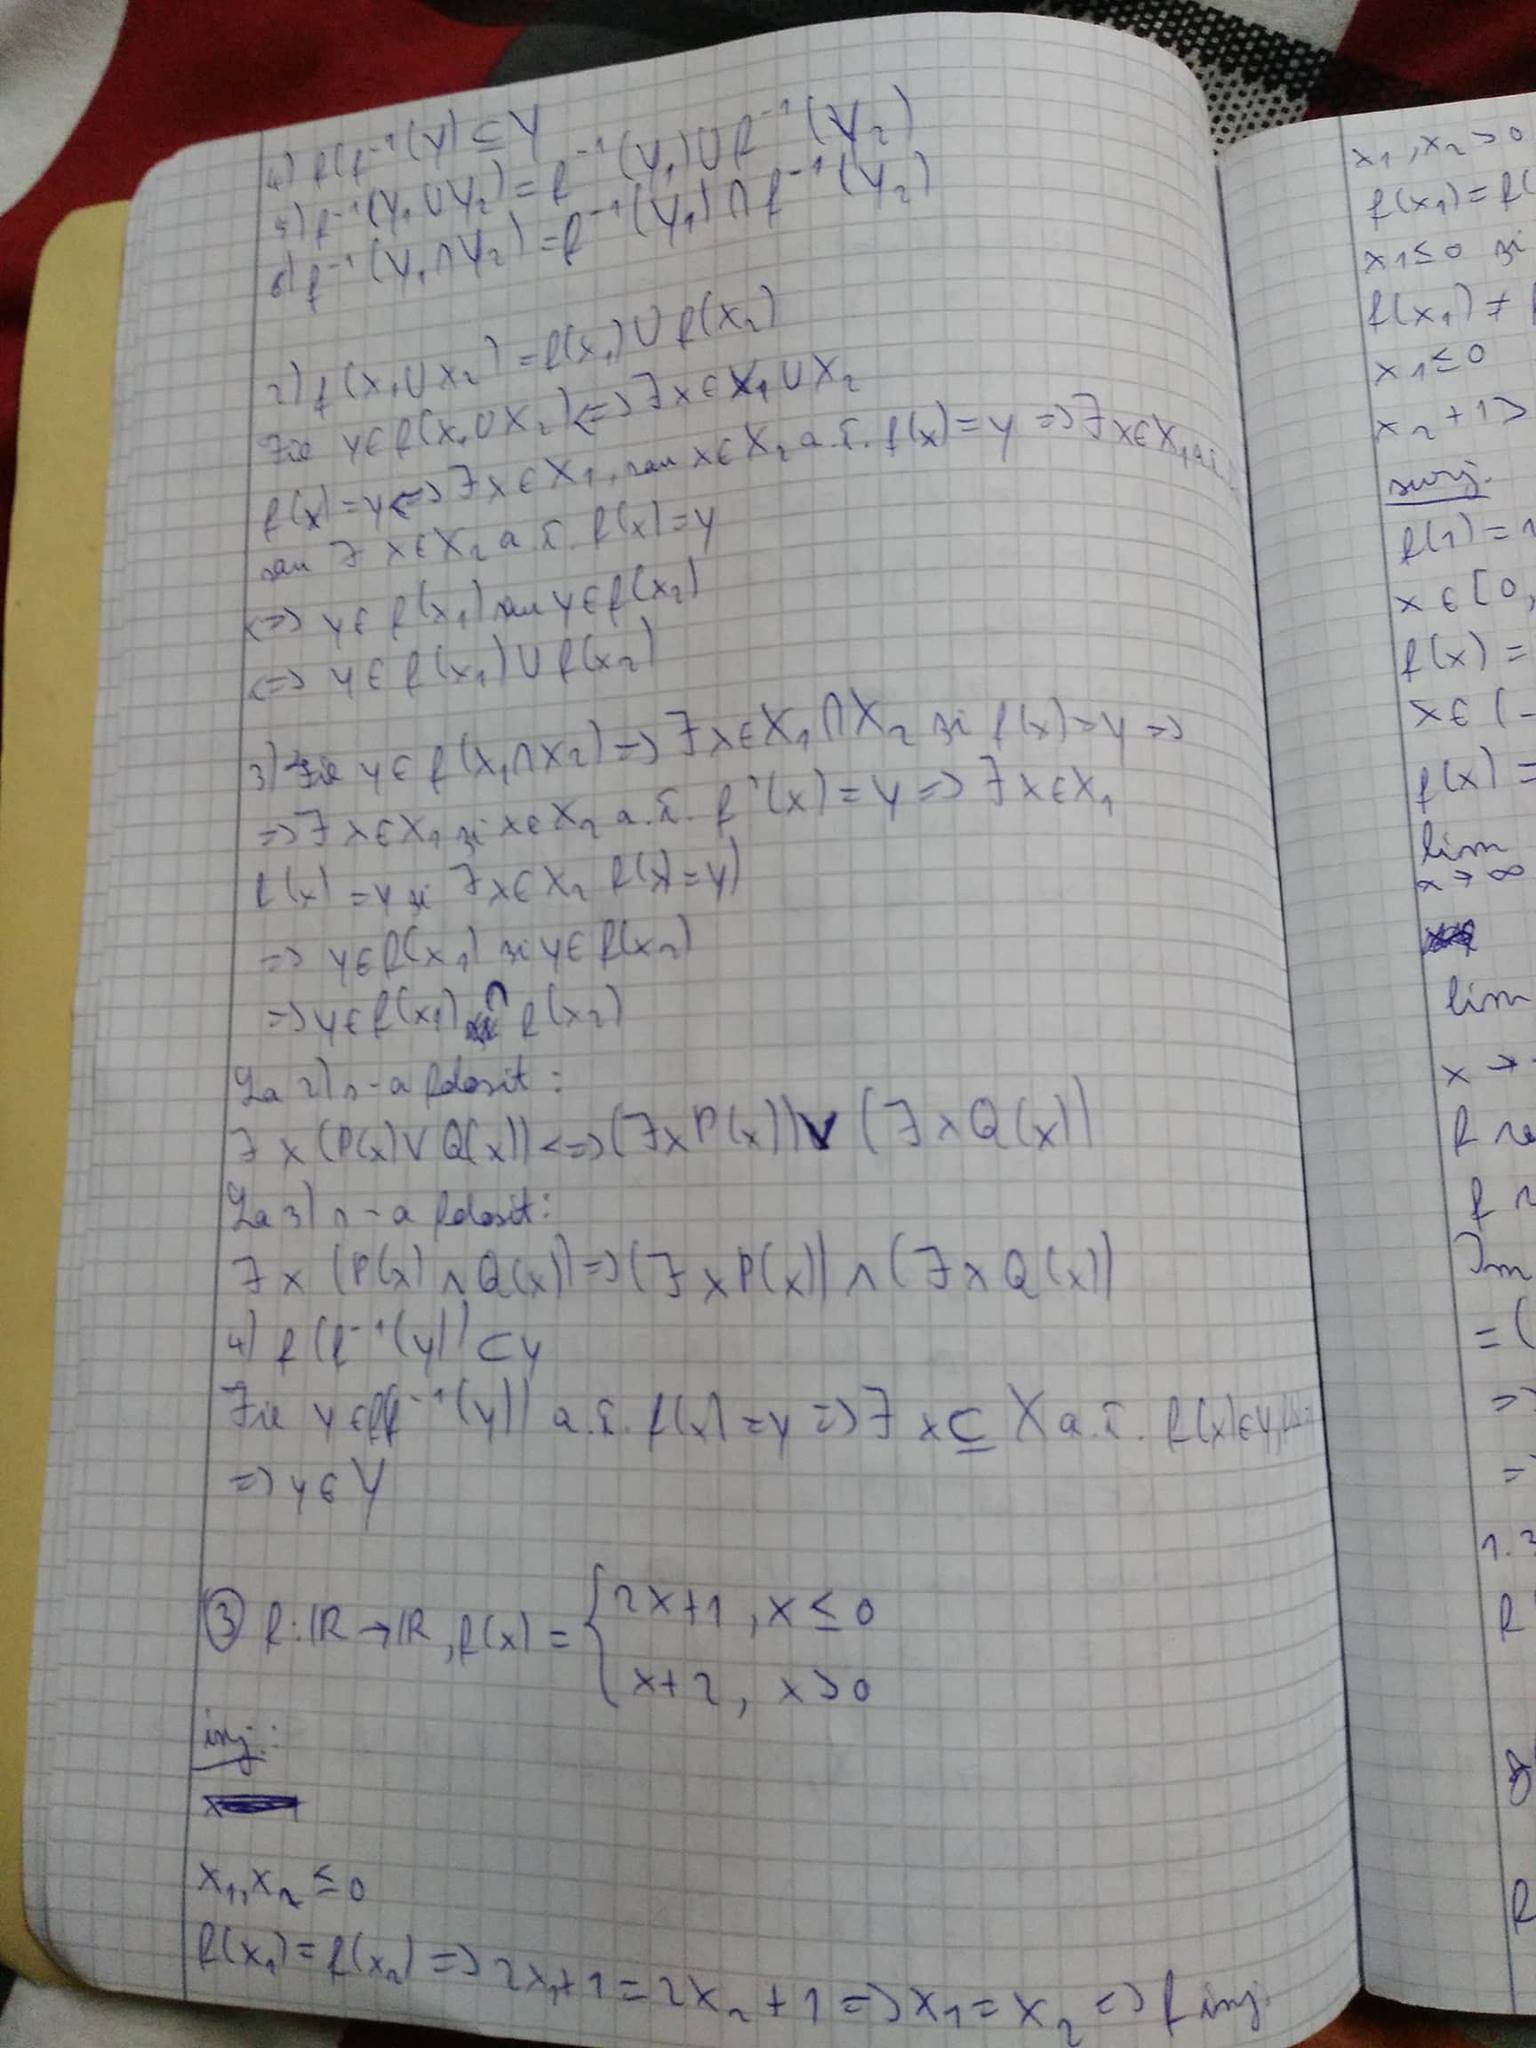 4) f(f⁻¹(Y)) ⊆ Y
5) f⁻¹(Y₁∪Y₂) = f⁻¹(Y₁)∪f⁻¹(Y₂)
6) f⁻¹(Y₁∩Y₂) = f⁻¹(Y₁)∩f⁻¹(Y₂)
2) f(X₁∪X₂) = f(X₁)∪f(X₂)
Fie y∈f(X₁∪X₂) <=> ∃x∈X₁∪X₂
f(x)=y <=> ∃x∈X₁, sau x∈X₂ a.î. f(x)=y => ∃x∈X₁ a.î.
sau ∃ x∈X₂ a.î. f(x)=y
<=> y∈f(x₁) sau y∈f(x₂)
<=> y∈f(x₁)∪f(x₂)
3) Fie y∈f(X₁∩X₂) => ∃x∈X₁∩X₂ și f(x)=y =>
=> ∃x∈X₁ și x∈X₂ a.î. f(x)=y => ∃x∈X₁
f(x)=y și ∃x∈X₂ f(x)=y)
=> y∈f(x₁) și y∈f(x₂)
=> y∈f(x₁) ∩ f(x₂)
La 2) s-a folosit:
∃x (P(x)∨Q(x)) <=> (∃xP(x)) ∨ (∃xQ(x))
La 3) s-a folosit:
∃x (P(x)∧Q(x)) => (∃xP(x)) ∧ (∃xQ(x))
4) f(f⁻¹(y)) ⊂ y
Fie y∈f(f⁻¹(y)) a.î. f(x)=y => ∃x⊆X a.î. f(x)∈Y,
=> y∈Y
③ f:ℝ→ℝ, f(x) = { 2x+1, x≤0
x+2, x>0
inj.:
x₁,x₂ ≤ 0
f(x₁)=f(x₂) => 2x₁+1=2x₂+1 => x₁=x₂ => f inj.
x₁,x₂>0
f(x₁)=f(
x₁≤0 și
f(x₁)≠
x₁≤0
x₂+1>
surj.
f(1)=
x∈[0,
f(x)=
x∈(-
f(x)=
lim
x→∞
lim
x→
f
f
Im
=(
=>
=>
1.
f